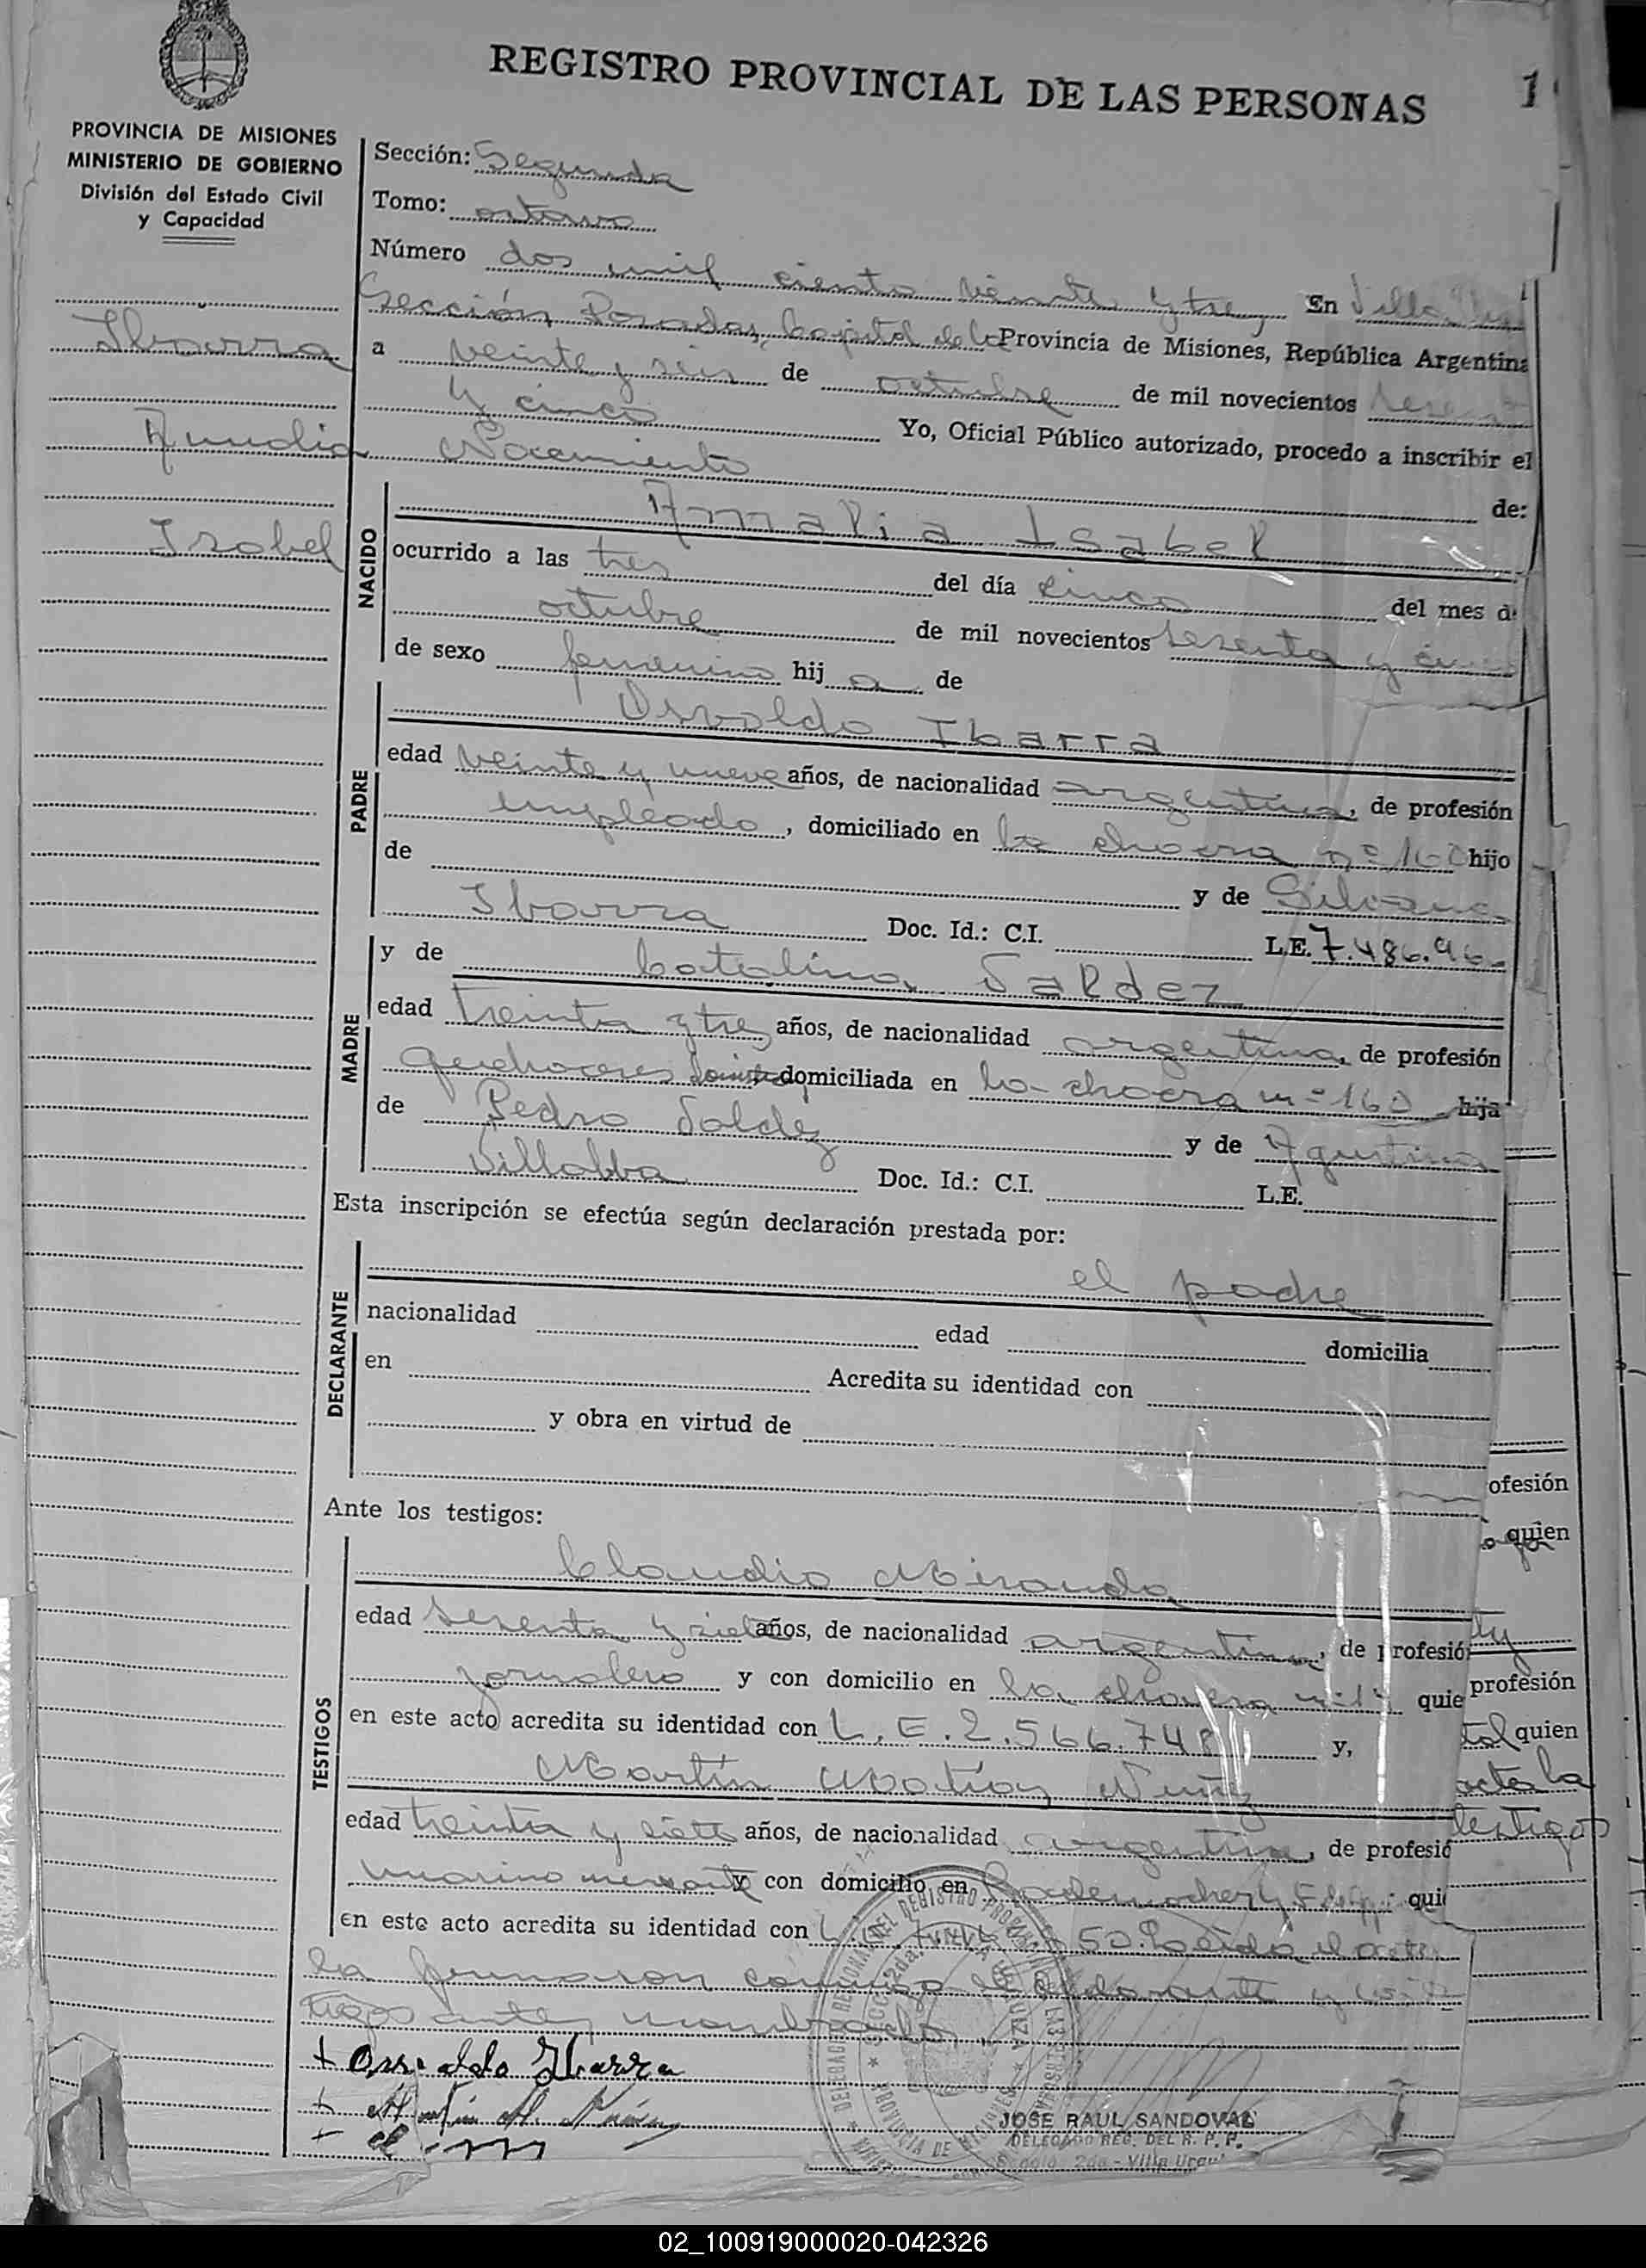 REGISTRO PROVINCIAL DE LAS PERSONAS 1
PROVINCIA DE MISIONES
MINISTERIO DE GOBIERNO
División del Estado Civil
y Capacidad
Ibarra
Amalia
Isabel
Sección: Segunda
Tomo: octavo
Número dos mil ciento veinte y tres En Villa
Sección Posadas, Capital de la Provincia de Misiones, República Argentina
a veinte y seis de octubre de mil novecientos
y cinco Yo, Oficial Público autorizado, procedo a inscribir el
Nacimiento de:
NACIDO
Amalia Isabel
ocurrido a las tres del día cinco del mes d
octubre de mil novecientos sesenta y
de sexo femenino hij a de
PADRE
Osvaldo Ibarra
edad veinte y nueve años, de nacionalidad argentina, de profesión
empleado, domiciliado en la chacra nº hijo
de y de Silvana
Ibarra Doc. Id.: C.I. L.E. 7.486.96
MADRE
y de Catalina Saldez
edad treinta y tres años, de nacionalidad argentina, de profesión
quehaceres domiciliada en la chacra nº 160 hija
de Pedro Saldez y de Agustina
Villalba Doc. Id.: C.I. L.E.
Esta inscripción se efectúa según declaración prestada por:
DECLARANTE
el padre
nacionalidad edad domicilia
en Acredita su identidad con
y obra en virtud de
ofesión
Ante los testigos:
quien
TESTIGOS
Claudio Miranda
edad sesenta y siete años, de nacionalidad argentina, de profesió
jornalero y con domicilio en la chacra quie
profesión
en este acto acredita su identidad con L.E. 2.566.748 y,
quien
Martín Matías Nuñez
acta la
edad treinta y siete años, de nacionalidad argentina, de profesió
testigos
marino mercante y con domicilio en qui
en este acto acredita su identidad con L. 50. Leída el acta
la firmaron conmigo el declarante y los tes
tigos antes nombrados
+ Osvaldo Ibarra
+ Martín M. Núñez
+
JOSE RAUL SANDOVAL
DELEGADO REG. DEL R. P. P.
2da - Villa
02_100919000020-042326